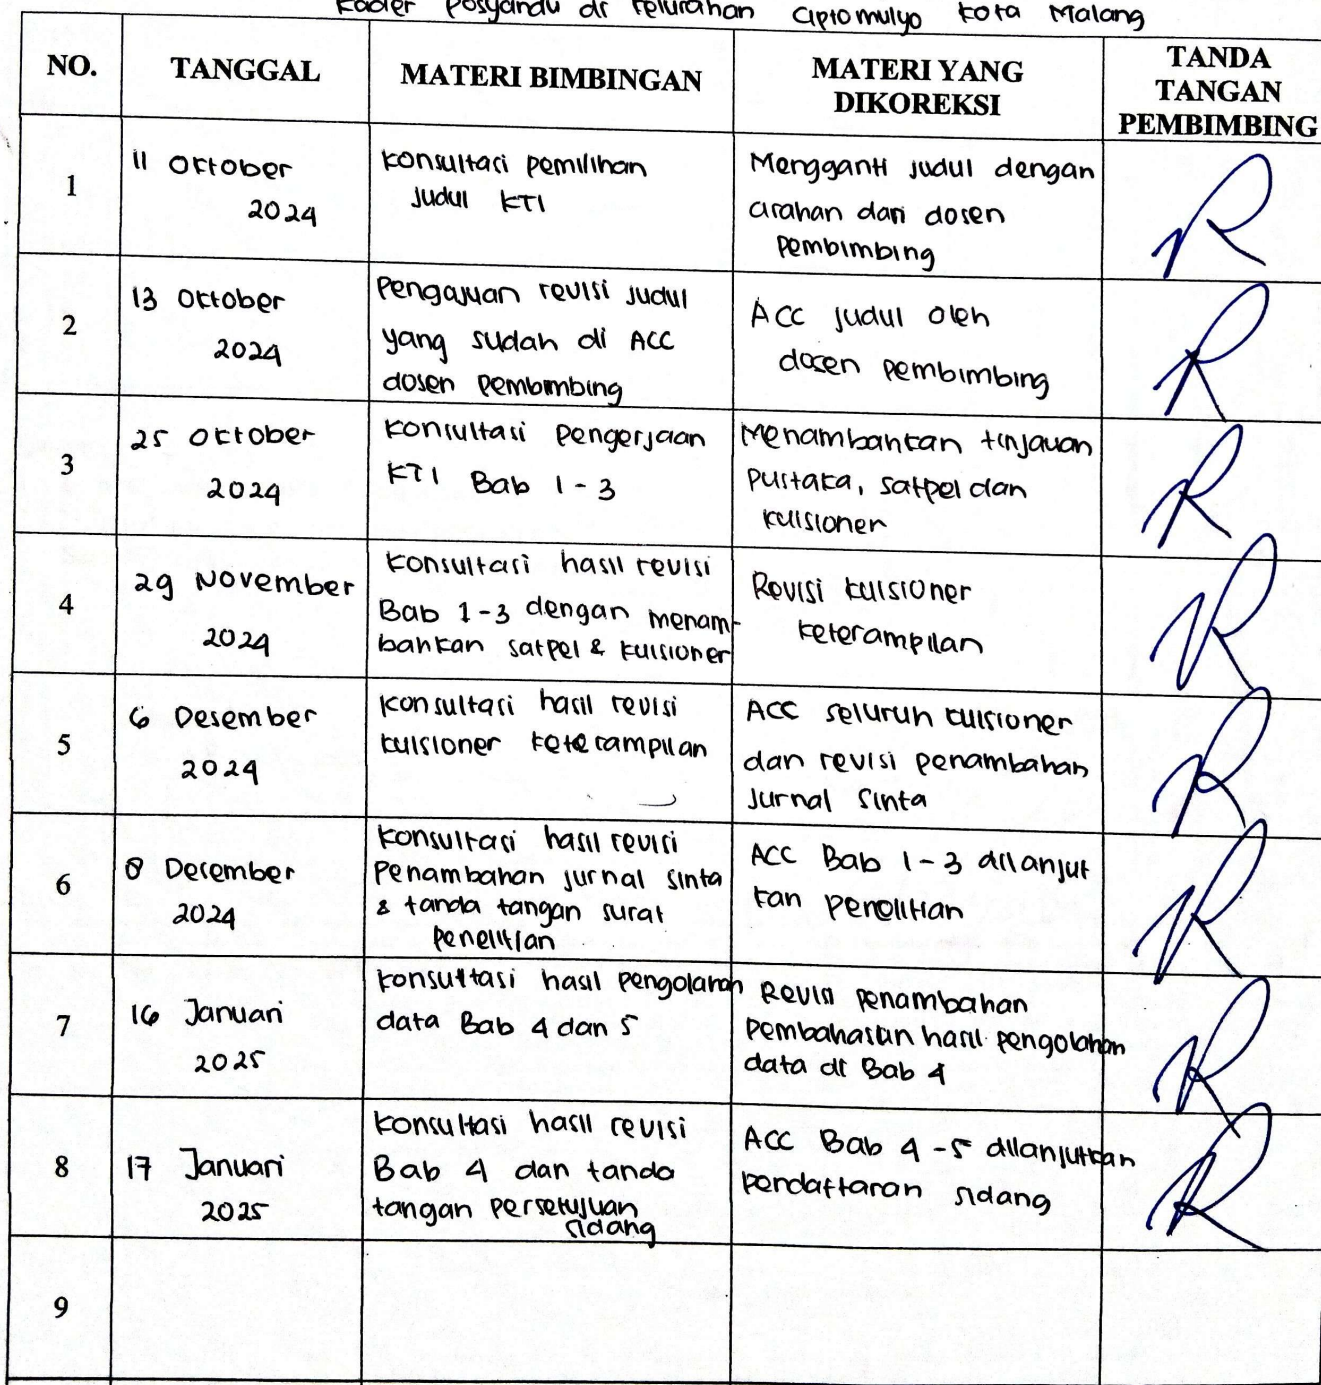 Kader Posyandu di Kelurahan Ciptomulyo Kota Malang
NO. TANGGAL MATERI BIMBINGAN MATERI YANG DIKOREKSI TANDA TANGAN PEMBIMBING
1
11 Oktober
2024
Konsultasi pemilihan
Judul KTI
Mengganti judul dengan
arahan dari dosen
pembimbing
2
13 Oktober
2024
Pengajuan revisi judul
yang sudah di ACC
dosen pembimbing
ACC judul oleh
dosen pembimbing
3
25 Oktober
2024
Konsultasi pengerjaan
KTI Bab 1-3
Menambahkan tinjauan
pustaka, satpel dan
kuisioner
4
29 November
2024
Konsultasi hasil revisi
Bab 1-3 dengan menam-
bahkan satpel & kuisioner
Revisi kuisioner
keterampilan
5
6 Desember
2024
Konsultasi hasil revisi
kuisioner keterampilan
ACC seluruh kuisioner
dan revisi penambahan
Jurnal Sinta
6
8 Desember
2024
Konsultasi hasil revisi
Penambahan jurnal Sinta
& tanda tangan surat
penelitian
ACC Bab 1-3 dilanjut
kan penelitian
7
16 Januari
2025
Konsultasi hasil pengolahan
data Bab 4 dan 5
Revisi penambahan
pembahasan hasil pengolahan
data di Bab 4
8
17 Januari
2025
Konsultasi hasil revisi
Bab 4 dan tanda
tangan persetujuan
sidang
ACC Bab 4-5 dilanjutkan
pendaftaran sidang
9